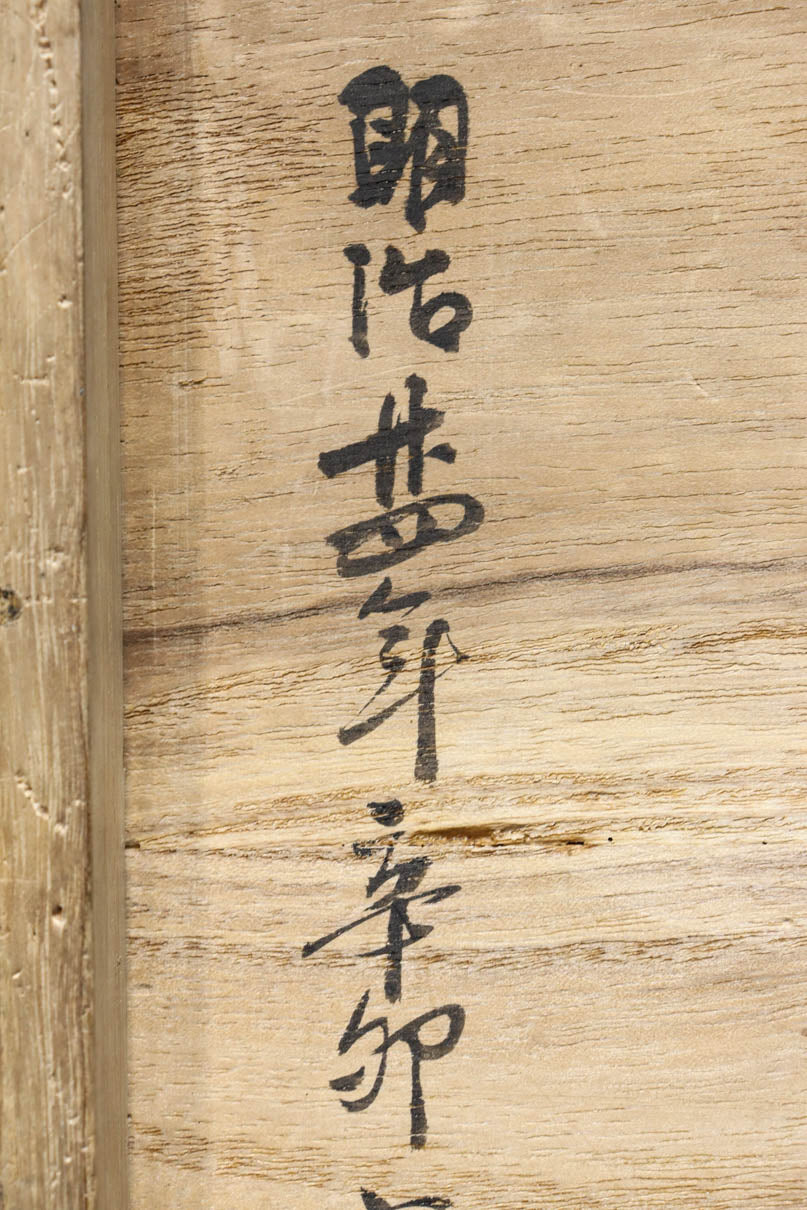 明治廿四年辛卯